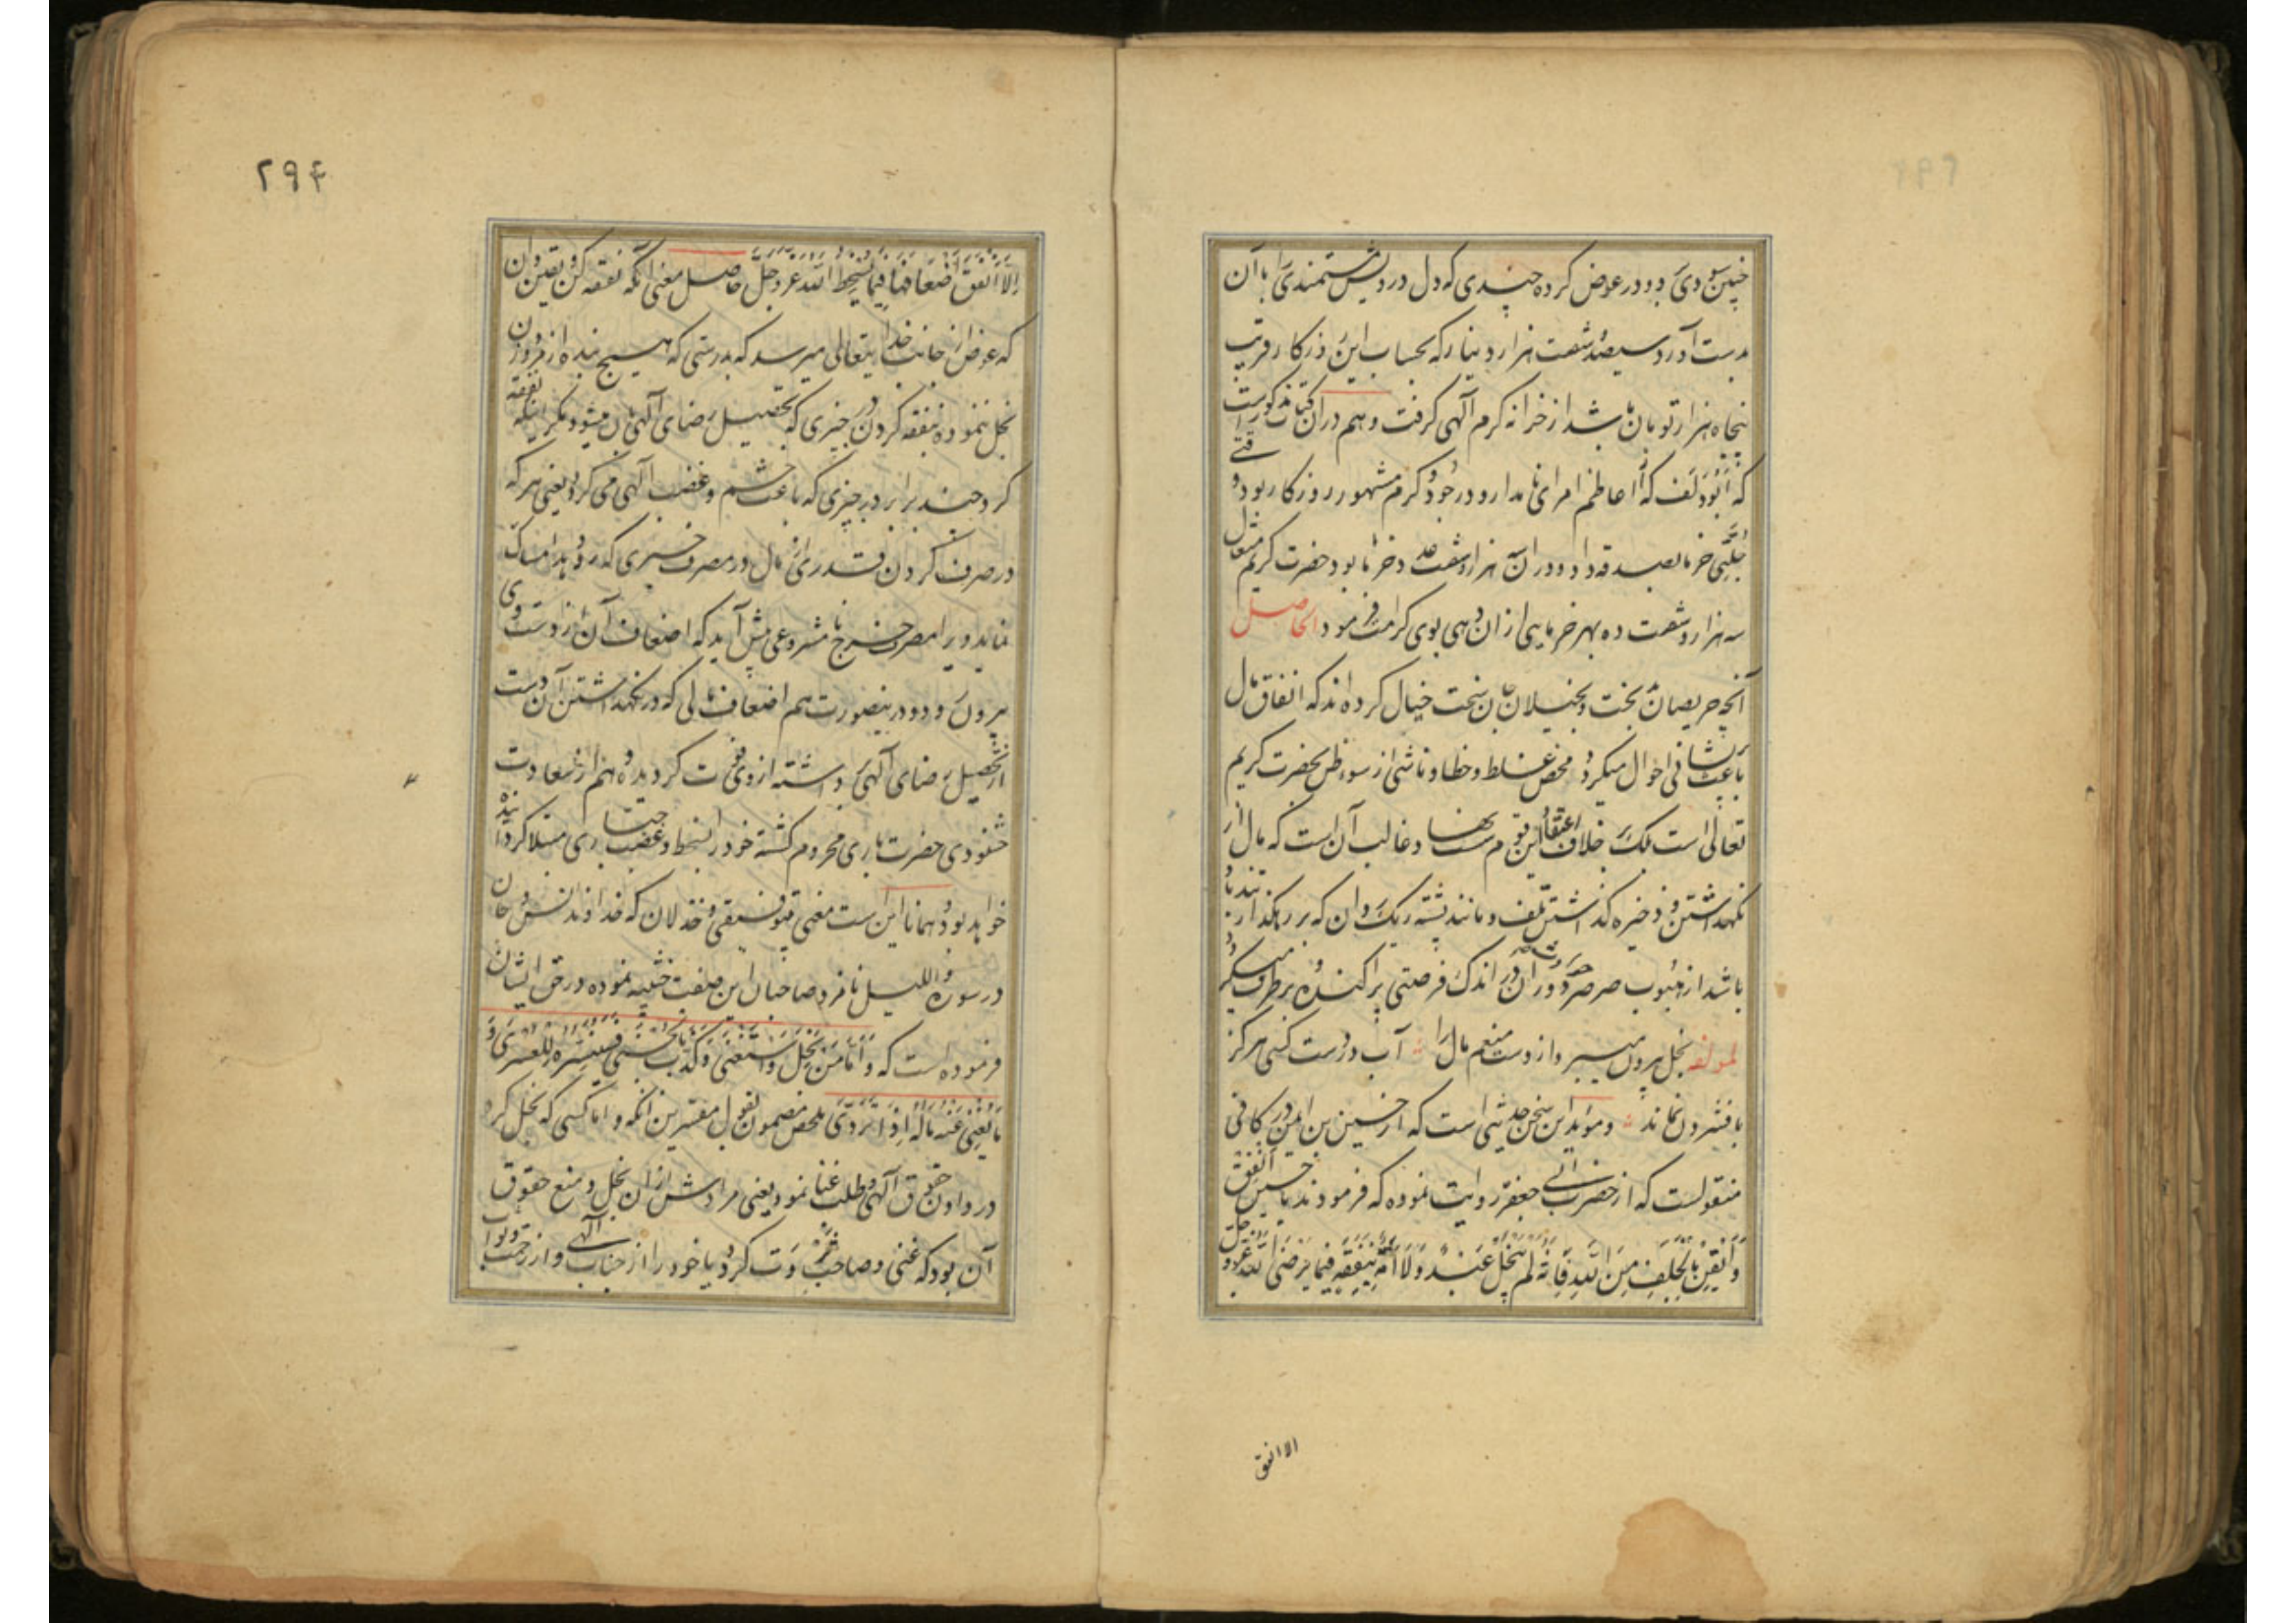 چنین سودی بود و در عوض کرده چندی که دل درویش مستمندی را با آن
بدست آورد سیصد و شصت هزار دینار که بحساب این روزگار قریب
پنجاه هزار تومان باشد از خزانه کرم الهی گرفت و هم در آن کتاب مذکور است
که ابودلف که از اعاظم امرای نامدار و در جود و کرم مشهور روزگار بود وقتی
خرما بصدقه داد و در آن هزار و شصت عدد خرما بود حضرت کریم متعال
سه هزار و شصت ده بهر خرمایی از آن دهی بوی کرامت فرمود الحاصل
آنچه حریصان بخت و بخیلان جان سخت خیال کرده‌اند که انفاق مال
باعث پریشانی احوال میگردد محض غلط و خطا و ناشی از سوء ظن بحضرت کریم
تعالی است بلکه خلاف اعتقاد این قوم و غالب آن است که مال از
نگهداشتن و ذخیره گذاشتن تلف و مانند پشته ریک روان که بر رهگذار تند باد
باشد از هبوب صرصر دوران در اندک فرصتی پراکنده و برطرف میگردد
لمولفه بخل بیرون میبرد از دست منعم مال را آب در دست کسی هرگز
با فشردن نماند و مؤید این سخن حدیثی است که از حسین بن ایمن در کافی
منقولست که از حضرت ابی جعفر روایت نموده که فرمودند یا حسین انفق
و ایقن بالخلف من الله فانه لم یبخل عبد و لا امة بنفقة فیما یرضی الله عز و جل
الا انفق
۲۹۴
الا انفق اضعافها فیما یسخط الله عز و جل حاصل معنی آنکه نفقه کن و یقین دان
که عوض از جانب خدایتعالی میرسد که بدرستی که هیچ بنده از مرد و زن
بخل ننموده بنفقه کردن در چیزی که تحصیل رضای الهی بآن میشود مگر اینکه نفقه
کرد چند برابر در چیزی که باعث خشم و غضب الهی می گردد یعنی هر که
در صرف کردن قدری از مال در مصرف خیری که رو دهد امساک
نماید ویرا مصرف خرج نامشروعی پیش آید که اضعاف آن از دست وی
بیرون رود و درینصورت هم اضعاف مالی که در نگهداشتن آن دست
از تحصیل رضای الهی برداشته از وی فوت گردیده و هم از سعادت
خشنودی حضرت باری محروم گشته خود را بسخط و غضب جناب باری مبتلا کرده
خواهد بود و همانا این است معنی بی توفیقی و خذلان که خداوند انس و جان
در سوره واللیل نامزد صاحبان این صفت خبیثه نموده در حق ایشان
فرموده است که و اما من بخل و استغنی و کذب بالحسنی فسنیسره للعسری و
ما یغنی عنه ماله اذا تردی ملخص مضمون بقول مفسرین آنکه و اما کسی که بخل کرد
در دادن حقوق الهی و طلب غنا نمود یعنی مرادش از آن بخل و منع حقوق
آن بود که غنی و صاحب ثروت گردد یا خود را از جناب الهی و از رحمت و ثواب